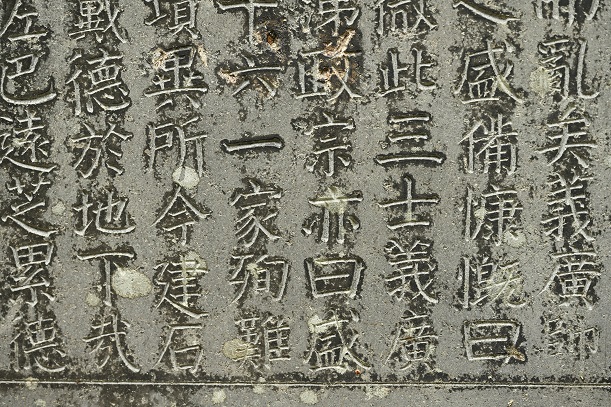 亂矣義廣師
之盛備慷慨曰
微此三士義廣
政宗亦曰盛
十六一家殉難
異所今建石
戴德於地下哉
左巴遠芝累德